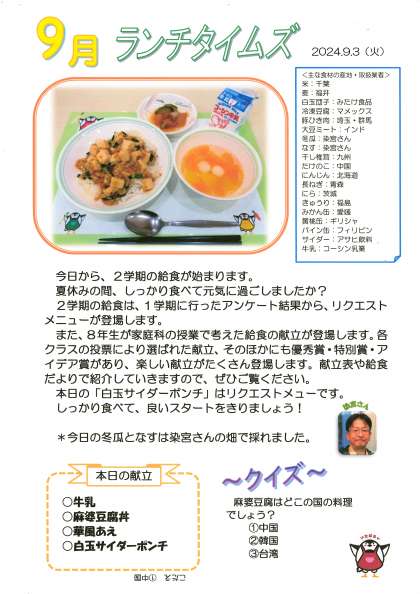 9月 ランチタイムズ
2024.9.3（火）
＜主な食材の産地・取扱業者＞
米：千葉
麦：福井
白玉団子：みたけ食品
冷凍豆腐：マメックス
豚ひき肉：埼玉・群馬
大豆ミート：インド
冬瓜：染宮さん
なす：染宮さん
干し椎茸：九州
たけのこ：中国
にんじん：北海道
長ねぎ：青森
にら：茨城
きゅうり：福島
みかん缶：愛媛
黄桃缶：ギリシャ
パイン缶：フィリピン
サイダー：アサヒ飲料
牛乳：コーシン乳業
今日から、２学期の給食が始まります。
夏休みの間、しっかり食べて元気に過ごしましたか？
２学期の給食は、１学期に行ったアンケート結果から、リクエスト
メニューが登場します。
また、８年生が家庭科の授業で考えた給食の献立が登場します。各
クラスの投票により選ばれた献立、そのほかにも優秀賞・特別賞・ア
イデア賞があり、楽しい献立がたくさん登場します。献立表や給食
だよりで紹介していきますので、ぜひご覧ください。
本日の「白玉サイダーポンチ」はリクエストメニューです。
しっかり食べて、良いスタートをきりましょう！
＊今日の冬瓜となすは染宮さんの畑で採れました。
染宮さん
本日の献立
○牛乳
○麻婆豆腐丼
○華風あえ
○白玉サイダーポンチ
～クイズ～
麻婆豆腐はどこの国の料理
でしょう？
①中国
②韓国
③台湾
こたえ ①中国